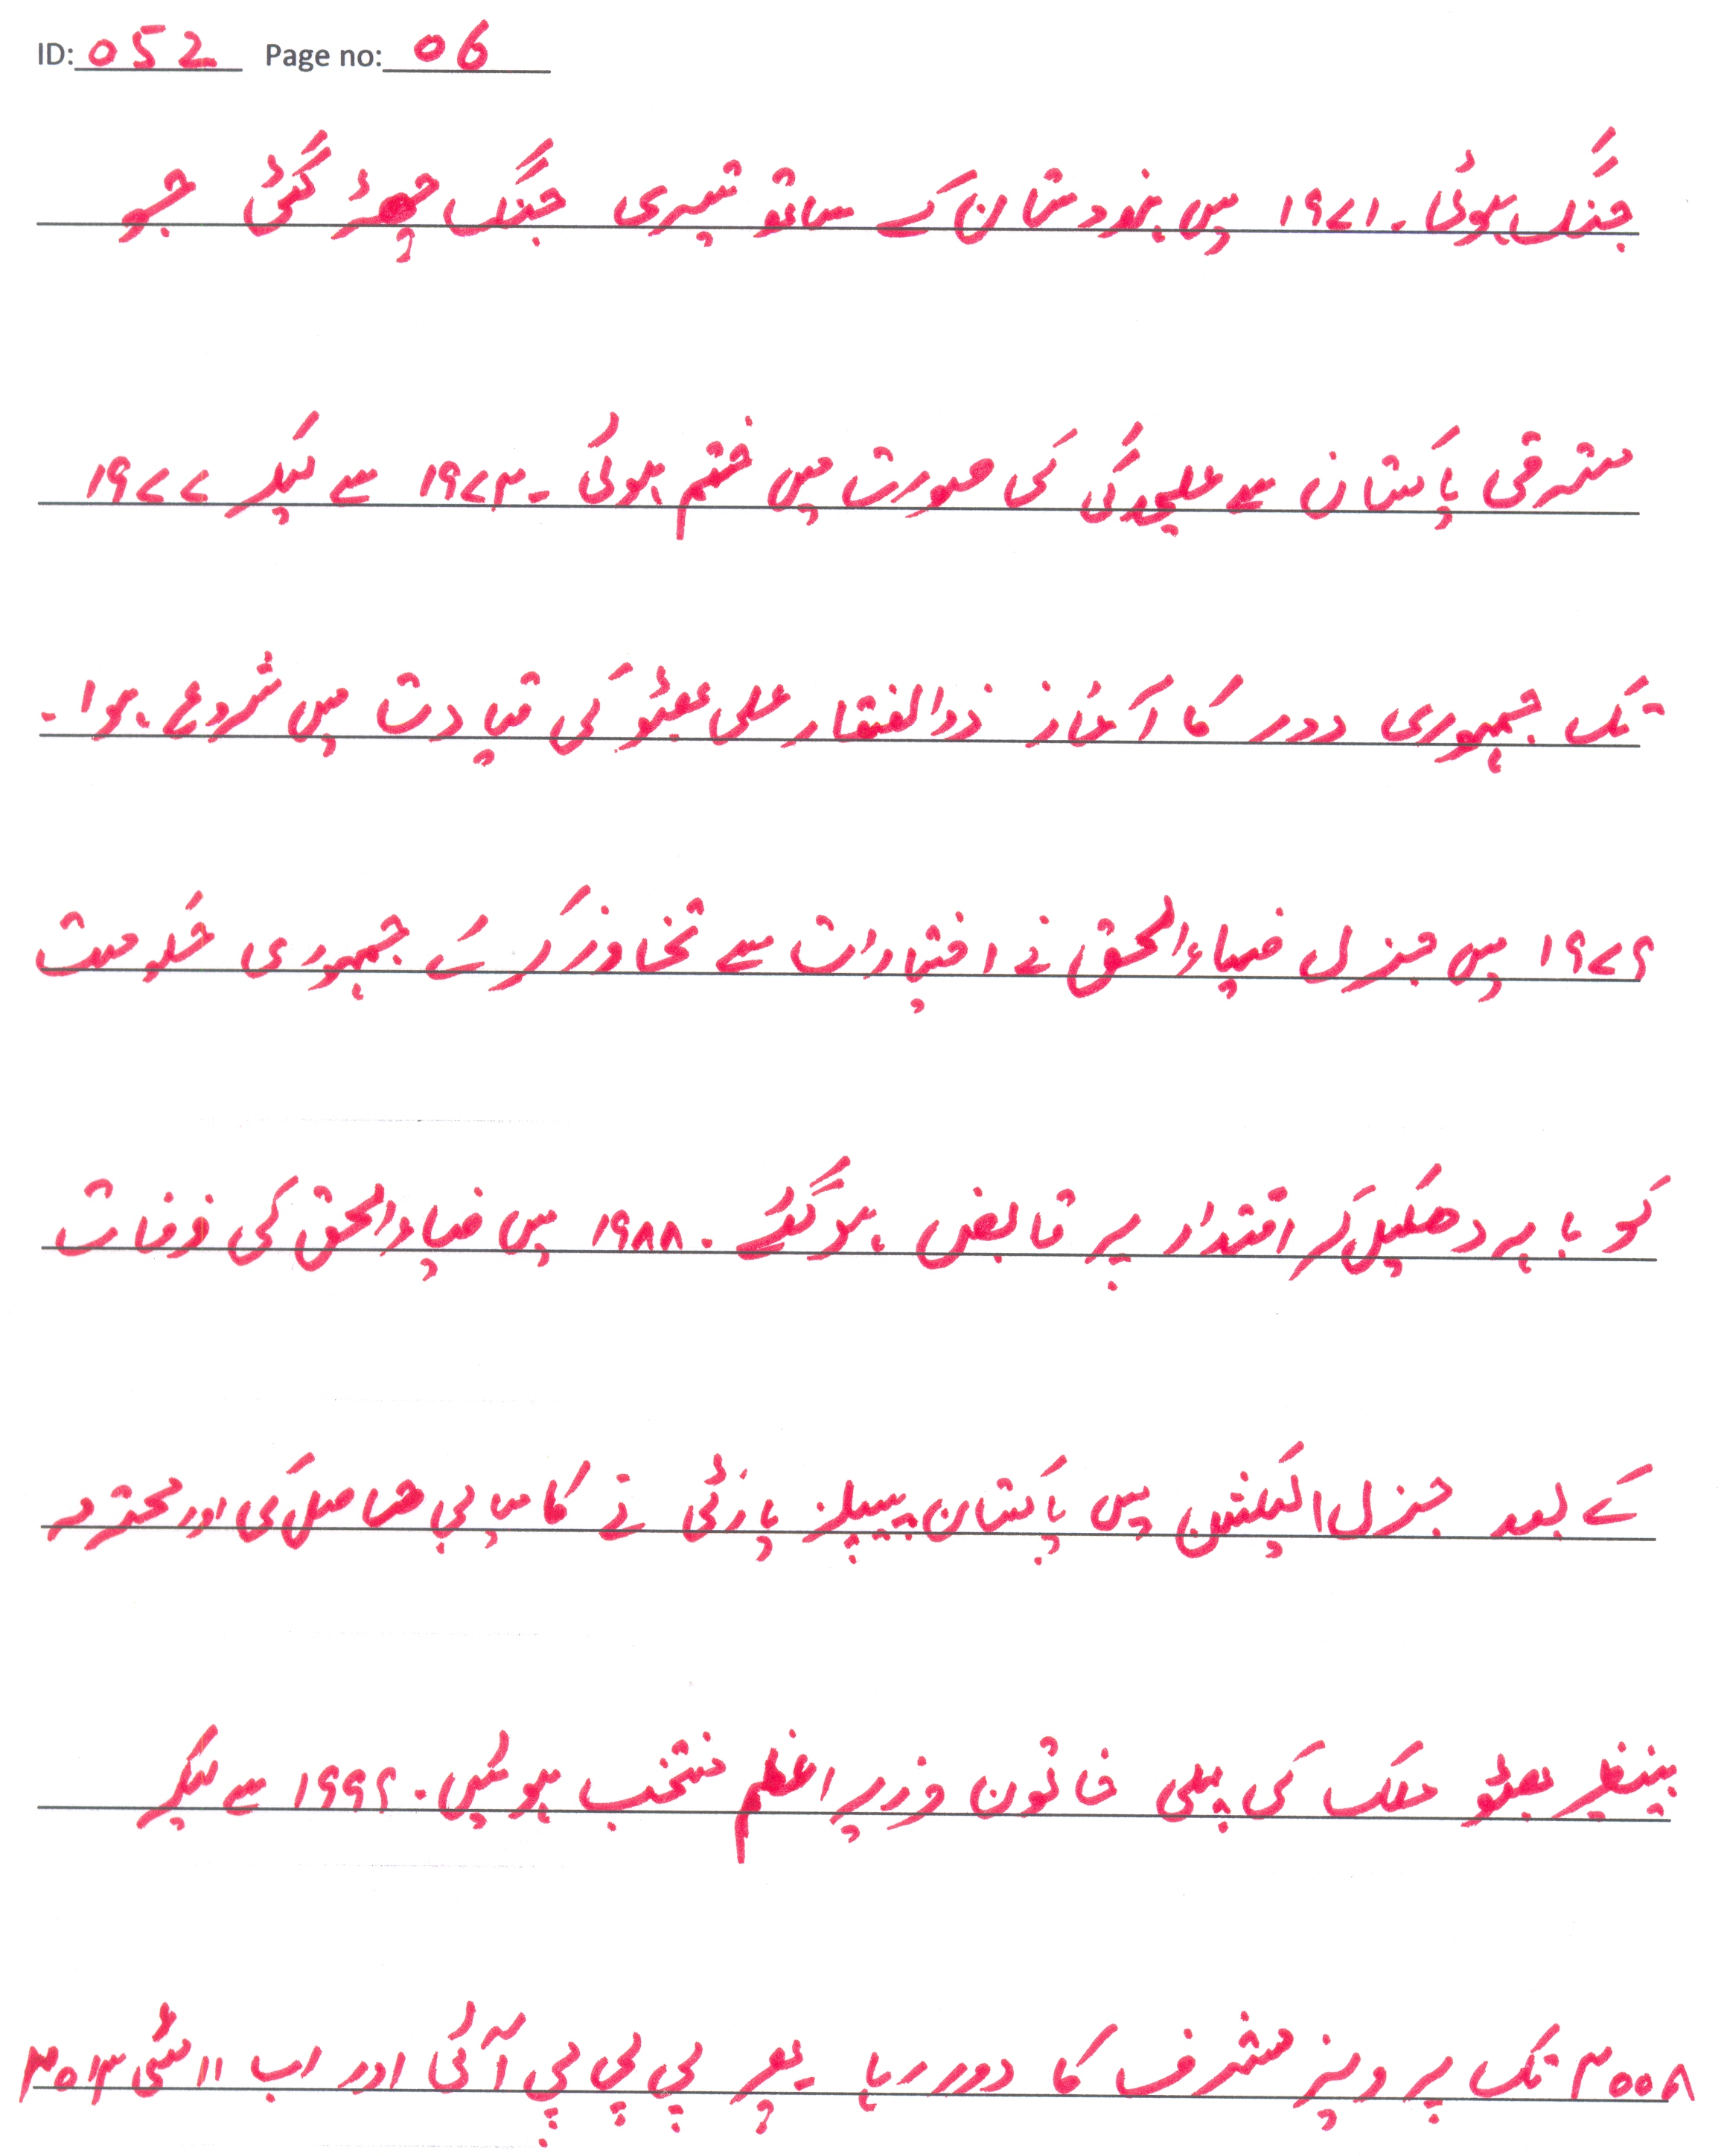 ID: 052 Page no: 06
جنگ ہوئی۔ ۱۹۷۱ میں ہندوستان کے ساتھ تیسری جنگ چھڑ گئی جو
مشرقی پاکستان سے علیحدگی کی صورت میں ختم ہوئی۔ ۱۹۷۳ سے لیکر ۱۹۷۷
تک جمہوری دور کا آغاز ذوالفقار علی بھٹو کی قیادت میں شروع ہوا۔
۱۹۷۹ میں جنرل ضیاءالحق نے اختیارات سے تجاوز کر کے جمہوری حکومت
کو باہر دھکیل کر اقتدار پر قابض ہو گئے۔ ۱۹۸۸ میں ضیاءالحق کی وفات
کے بعد جنرل الیکشن میں پاکستان پیپلز پارٹی نے کامیابی حاصل کی اور محترمہ
بینظیر بھٹو ملک کی پہلی خاتون وزیر اعظم منتخب ہوئیں۔ ۱۹۹۹ سے لیکر
۲۰۰۸ تک پرویز مشرف کا دور رہا۔ پھر پی پی پی آئی اور اب ۱۱ مئی